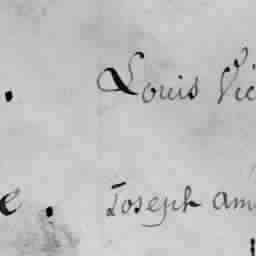 . Louis Vic
e. Joseph am